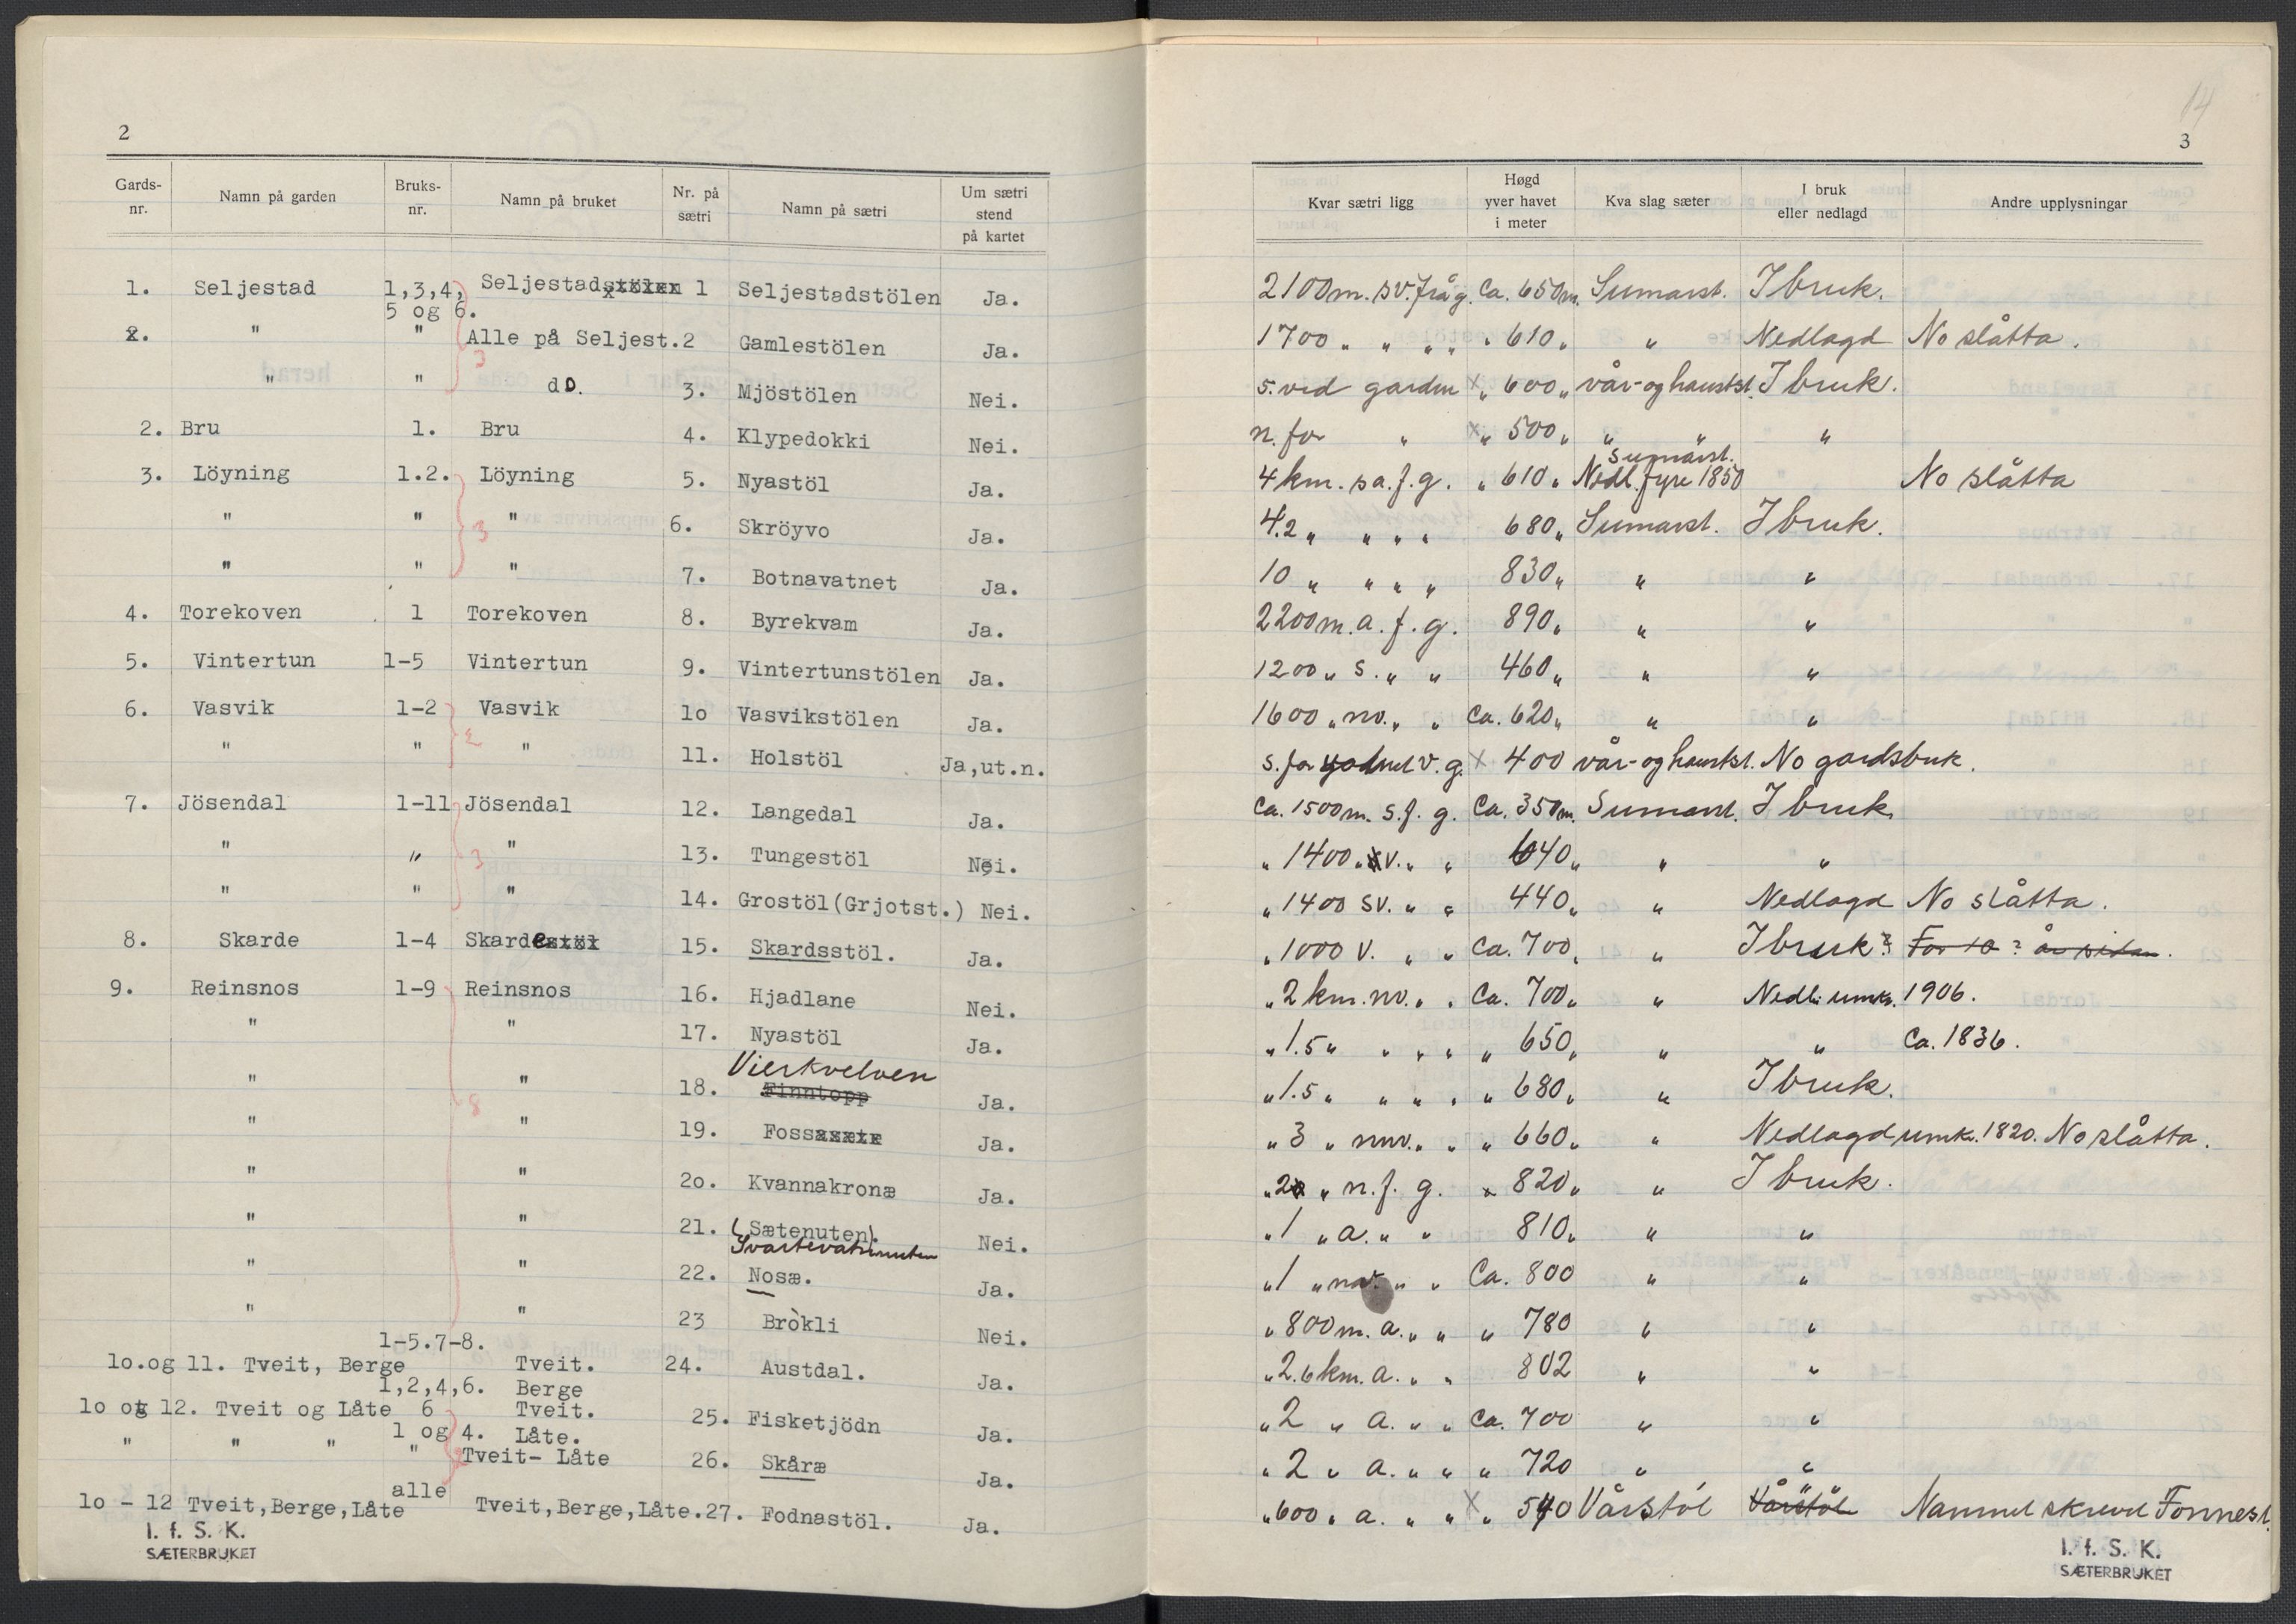 2
Gards-nr. Namn på garden Bruks-nr. Namn på bruket Nr. på sætri Namn på sætri Um sætri stend på kartet
1. Seljestad 1,3,4, Seljestad 1 Seljestadstölen Ja.
5 og 6.
2. " " Alle på Seljest. 2 Gamlestölen Ja.
" " do. 3. Mjöstölen Nei.
2. Bru 1. Bru 4. Klypedokki Nei.
3. Löyning 1.2. Löyning 5. Nyastöl Ja.
" " 3 " 6. Skröyvo Ja.
" " " 7. Botnavatnet Ja.
4. Torekoven 1 Torekoven 8. Byrekvam Ja.
5. Vintertun 1-5 Vintertun 9. Vintertunstölen Ja.
6. Vasvik 1-2 Vasvik 10 Vasvikstölen Ja.
" " 2 " 11. Holstöl Ja,ut.n.
7. Jösendal 1-11 Jösendal 12. Langedal Ja.
" " 3 " 13. Tungestöl Nei.
" " " 14. Grostöl(Grjotst.) Nei.
8. Skarde 1-4 Skarde 15. Skardsstöl. Ja.
9. Reinsnos 1-9 Reinsnos 16. Hjadlane Nei.
" " 17. Nyastöl Ja.
Vierkvelven
" 8 " 18. Finntopp Ja.
" " 19. Foss Ja.
" " 2o. Kvannakronæ Ja.
" " 21. (Sætenuten). Nei.
Svartevatsnuten
" " 22. Nosæ. Ja.
" " 23 Bròkli Nei.
1-5.7-8.
lo.og 11. Tveit, Berge Tveit. 24. Austdal. Ja.
1,2,4,6. Berge
lo og 12. Tveit og Låte 6 Tveit. 25. Fisketjödn Ja.
1 og 4. Låte.
" " " " Tveit- Låte 26. Skåræ Ja.
alle
lo - 12 Tveit,Berge,Låte Tveit,Berge,Låte. 27. Fodnastöl. Ja.
I. f. S. K.
SÆTERBRUKET
14
3
Kvar sætri ligg Høgd yver havet i meter Kva slag sæter I bruk eller nedlagd Andre upplysningar
2100 m. sv. frå g. Ca. 650 m. Sumarst. I bruk.
1700 " " " " " 610 " " Nedlagd No slåtta.
s. ved garden x " 600 " vår- og haustst. I bruk.
n. for " x " 500 " " " "
Sumarst.
4 km. sa. f. g. " 610 " Nedl. fyre 1850 No slåtta
4.2 " " " " 680 " Sumarst. I bruk.
10 " " " " 830 " " "
2200 m. a. f. g. 890 " " "
1200 " s. " " 460 " " "
1600 " nv. " " Ca. 620 " " "
s. for v. g. x 400 vår- og haustst. No gardsbruk.
Ca. 1500 m. s. f. g. Ca. 350 m. Sumarst. I bruk
" 1400 " v. " " 640 " " "
" 1400 sv. " " 440 " " Nedlagd No slåtta.
" 1000 v. " " Ca. 700 " " I bruk? For 10? år sidan.
" 2 km. nv. " " Ca. 700 " " Nedl. umkr. 1906.
" 1.5 " " " " " 650 " " " Ca. 1836.
" 1.5 " " " " " 680 " " I bruk.
" 3 " nnv. " " " 660 " " Nedlagd umkr. 1820. No slåtta.
" 2 " n. f. g. " 820 " " I bruk.
" 1 " a. " " 810 " " "
" 1 " nv. " " Ca. 800 " "
" 800 m. a. " " " 780 " "
" 2.6 km. a. " " 802 " "
" 2 " a. " " Ca. 700 " "
" 2 " a. " " " 720 " "
" 600 " a. " " x " 540 Vårstöl Vårstöl Namnet skreve Fonnest.
I. f. S. K.
SÆTERBRUKET